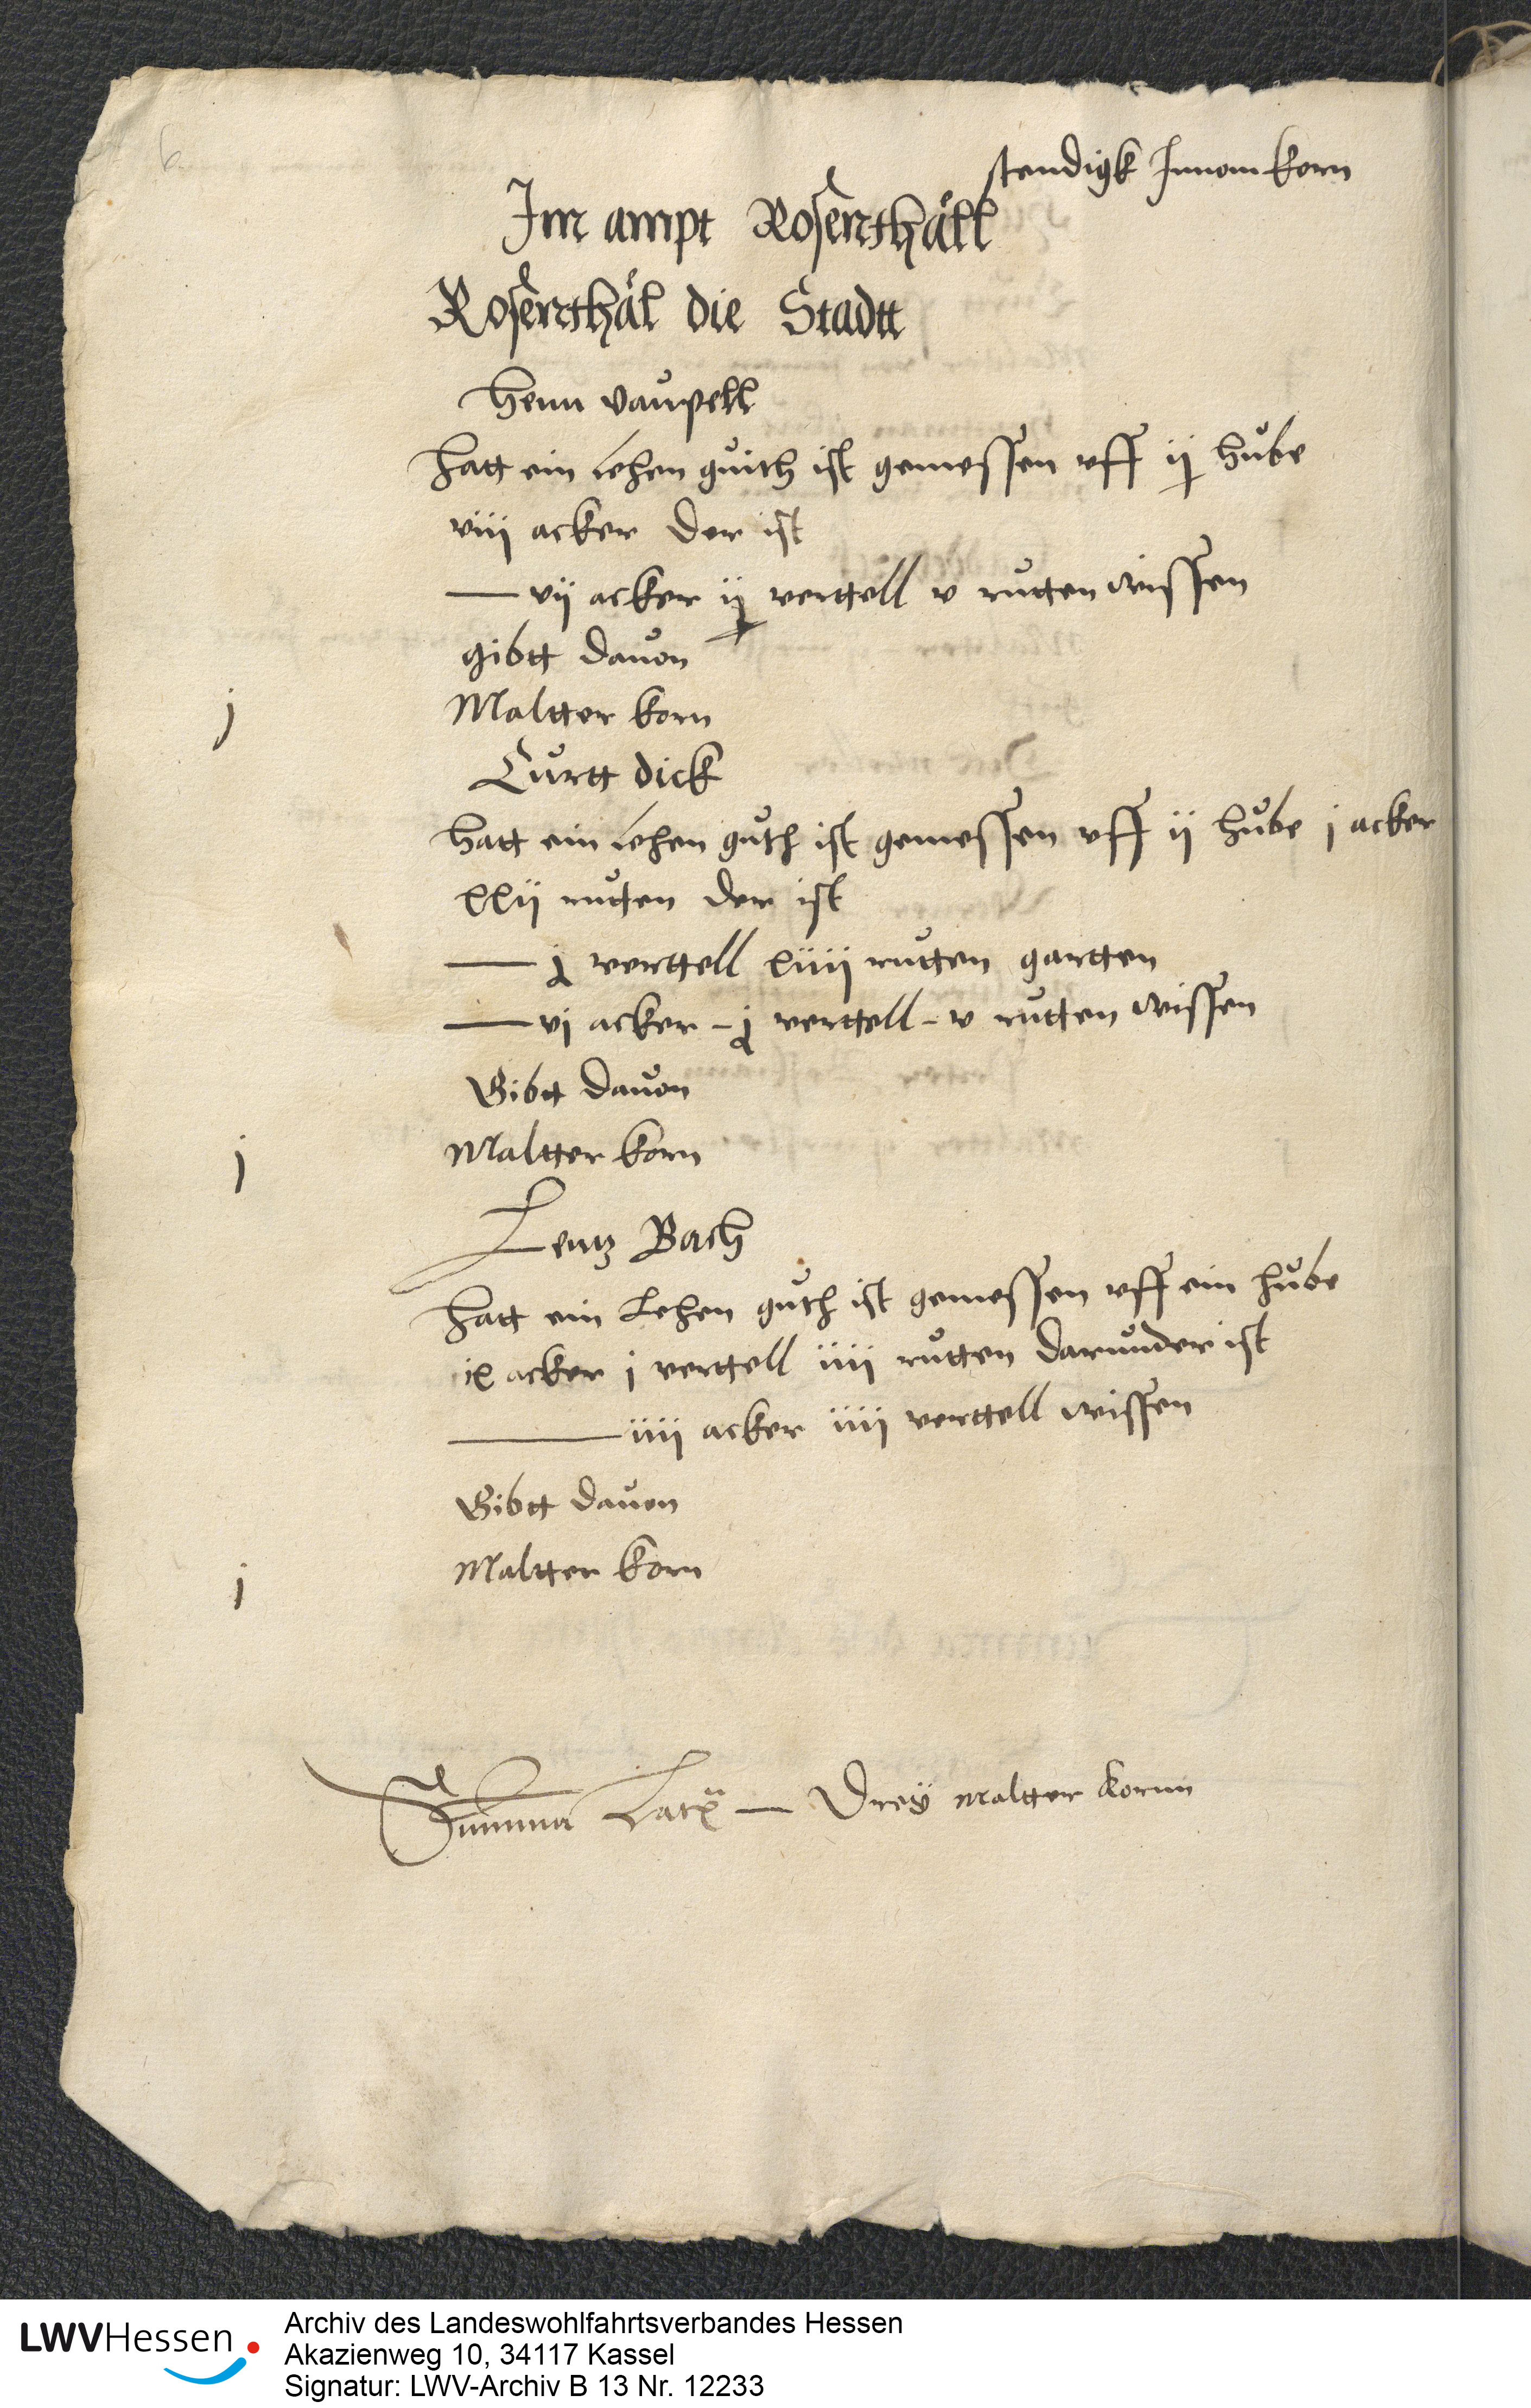 6
stendigk Innom korn
Im ampt Rosenthall
Rosenthal die Stadtt
Henn Vaupell
Hatt ein Lehen guith ist gemessen uff ij hube
viij acker der ist
— vij acker ij vertell v rutten wissen
gibtt davon
j Maltter korn
Curtt dick
Hatt ein Lehen guth ist gemessen uff ij hube j acker
xxij rutten der ist
— j vertell xiiij rutten gartten
— vj acker - j vertell - v rutten wissen
Gibtt davon
j Maltter korn
Lentz Bach
Hatt ein Lehen guth ist gemessen uff ein hube
ix acker j vertell iiij rutten darunder ist
— iiij acker iiij vertell wissen
Gibtt davon
j Maltter korn
Summa — Drey maltter kornn
LWVHessen
Archiv des Landeswohlfahrtsverbandes Hessen
Akazienweg 10, 34117 Kassel
Signatur: LWV-Archiv B 13 Nr. 12233